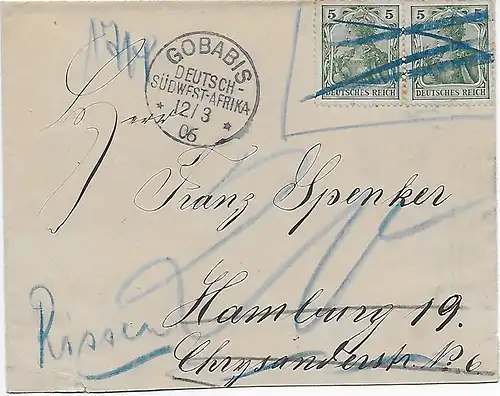 5 5
DEUTSCHES REICH DEUTSCHES REICH
GOBABIS
DEUTSCH-
SÜDWEST-AFRIKA
* 12/3 *
06
Herrn
Franz Spenker
Hamburg 19.
Chrysanderstr. No 6
Rissen